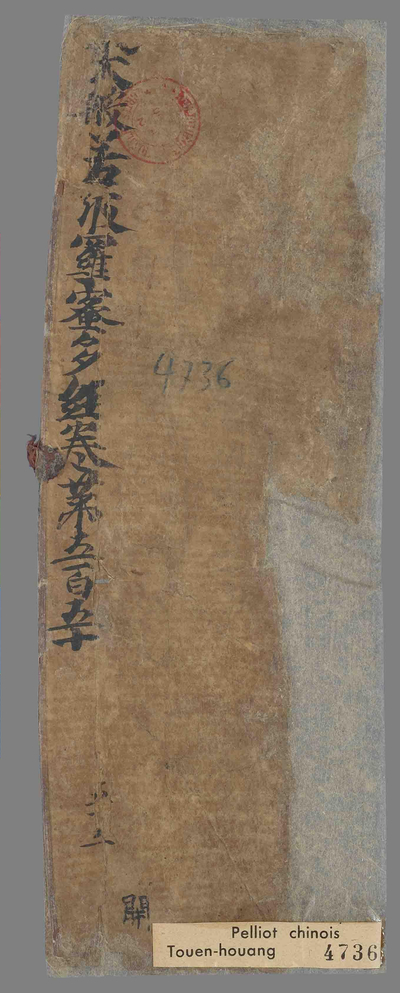 大般若波羅蜜多經卷第五百五十
4736
開
Pelliot chinois
Touen-houang 4736